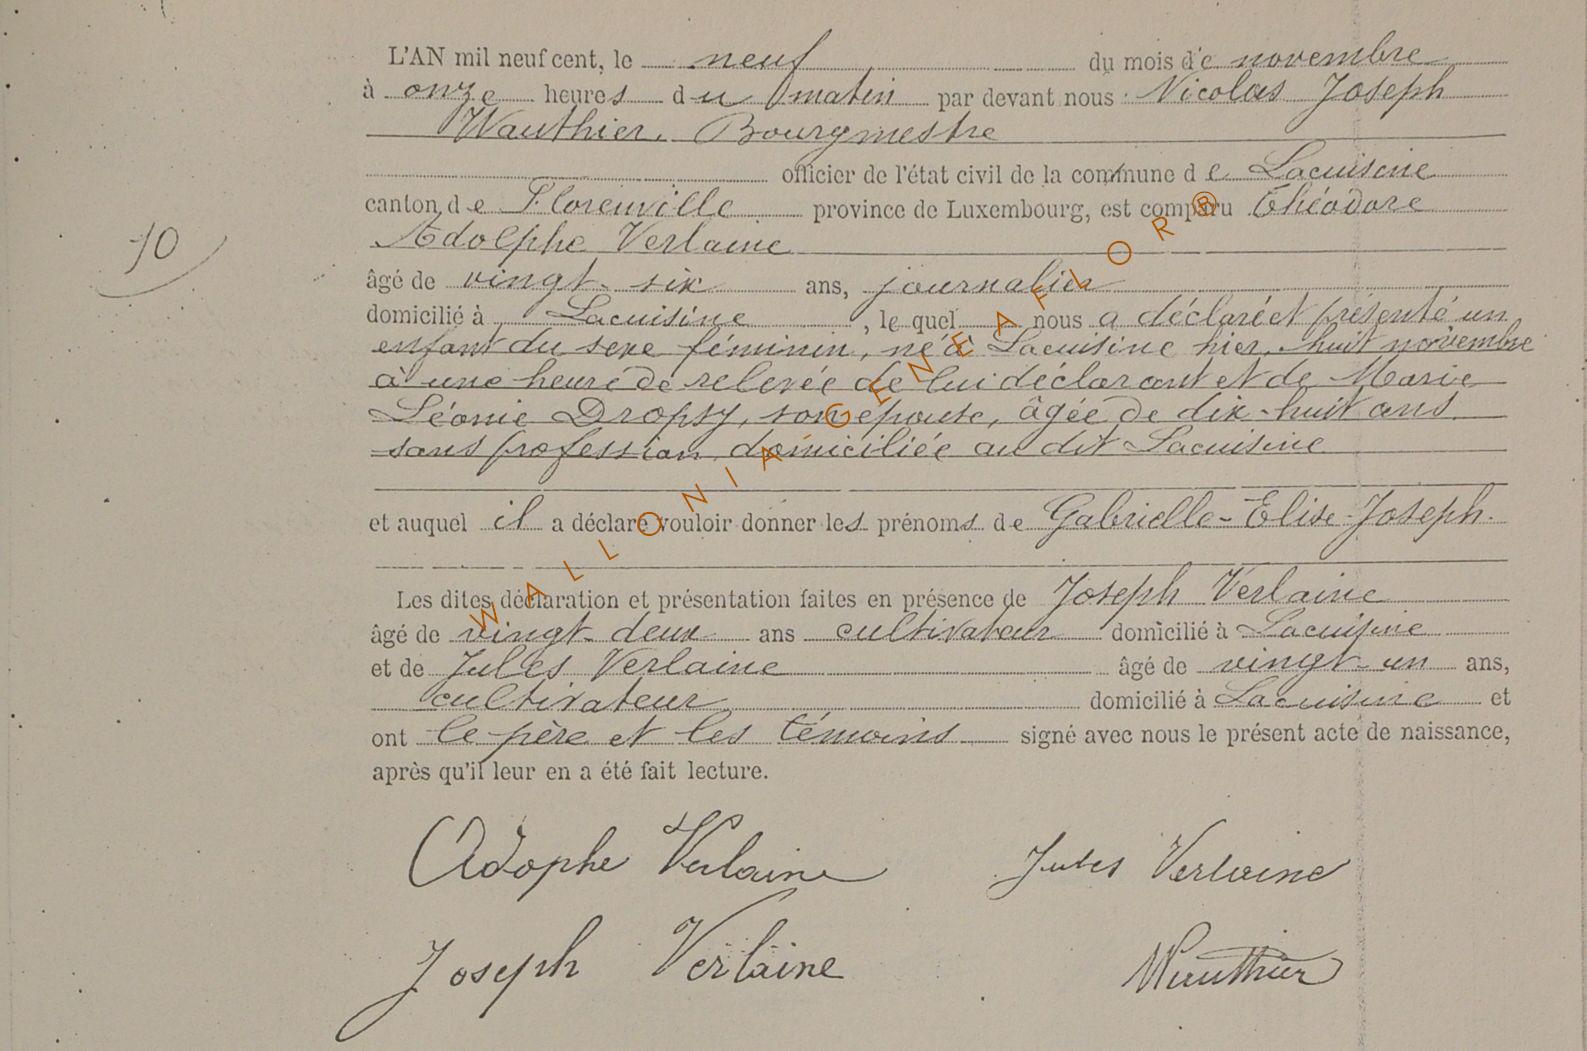 L'AN mil neuf cent, le neuf du mois de novembre
à onze heures du matin par devant nous Nicolas Joseph
Wauthier, Bourgmestre
officier de l'état civil de la commune de Lacuisine
canton de Florenville province de Luxembourg, est comparu Théodore
Adolphe Verlaine
10
âgé de vingt-six ans, journalier
domicilié à Lacuisine, le quel nous a déclaré et présenté un
enfant du sexe féminin, né à Lacuisine hier, huit novembre
à une heure de relevée de lui déclarant et de Marie
Léonie Dropsy, son épouse, âgée de dix-huit ans
sans profession domiciliée au dit Lacuisine
et auquel il a déclaré vouloir donner les prénoms de Gabrielle-Elise-Joseph.
Les dites déclaration et présentation faites en présence de Joseph Verlaine
âgé de vingt-deux ans cultivateur domicilié à Lacuisine
et de Jules Verlaine âgé de vingt-un ans,
cultivateur domicilié à Lacuisine et
ont le père et les témoins signé avec nous le présent acte de naissance,
après qu'il leur en a été fait lecture.
Adophe Verlaine Jules Verlaine
Joseph Verlaine Wauthier
WALLONIA GENEAFLOR®